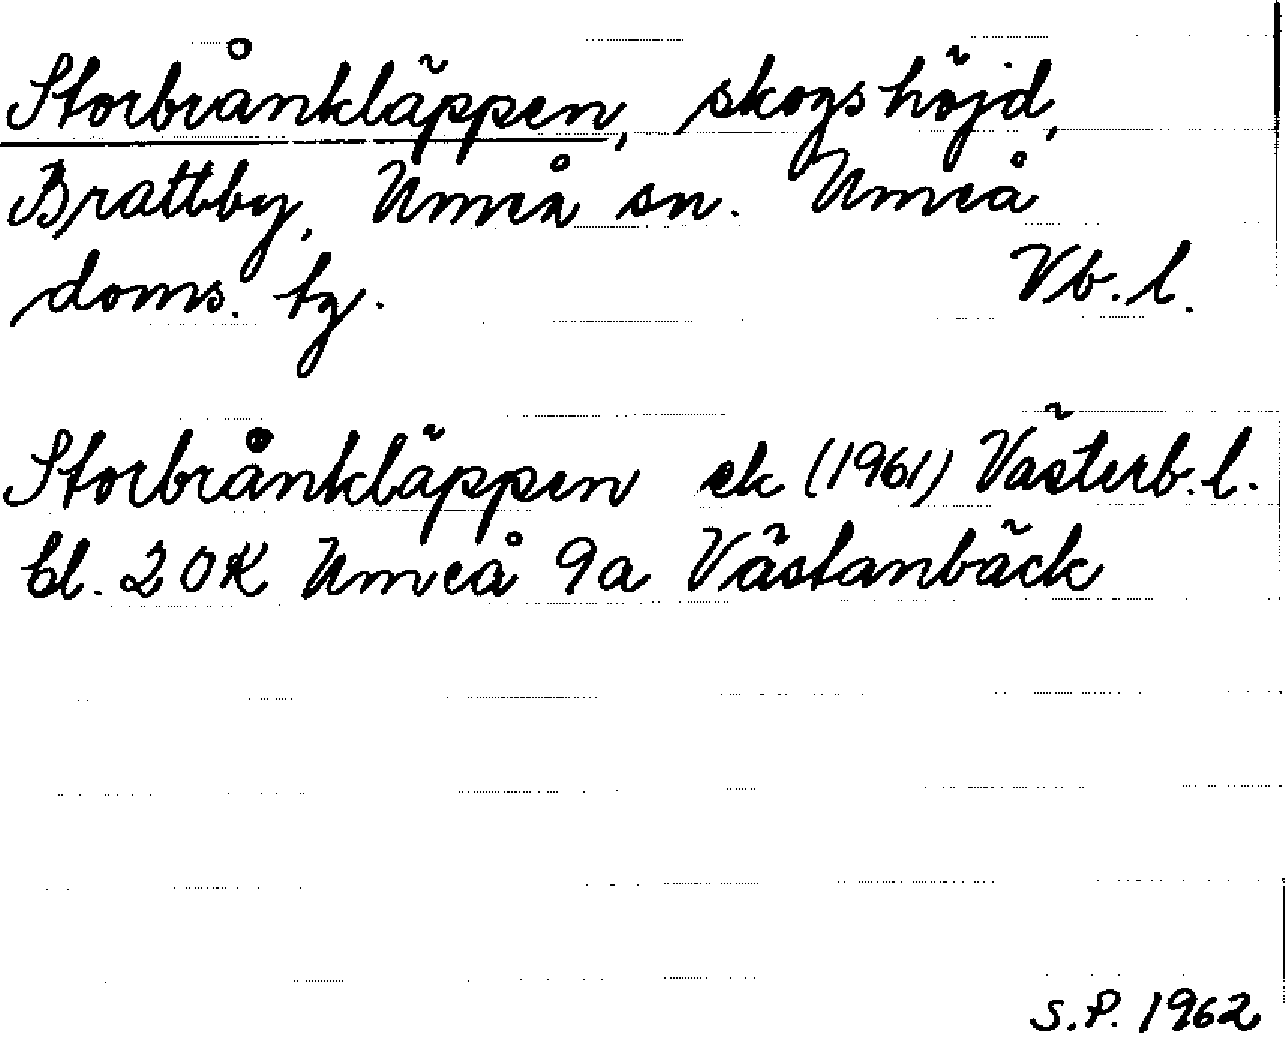 Storbrånkläppen, skogshöjd,
Brattby, Umeå sn. Umeå
doms. tg. Vb. l.
Storbrånkläppen ek (1961) Västerb. l.
bl. 20K Umeå 9a Västanbäck
S.P. 1962